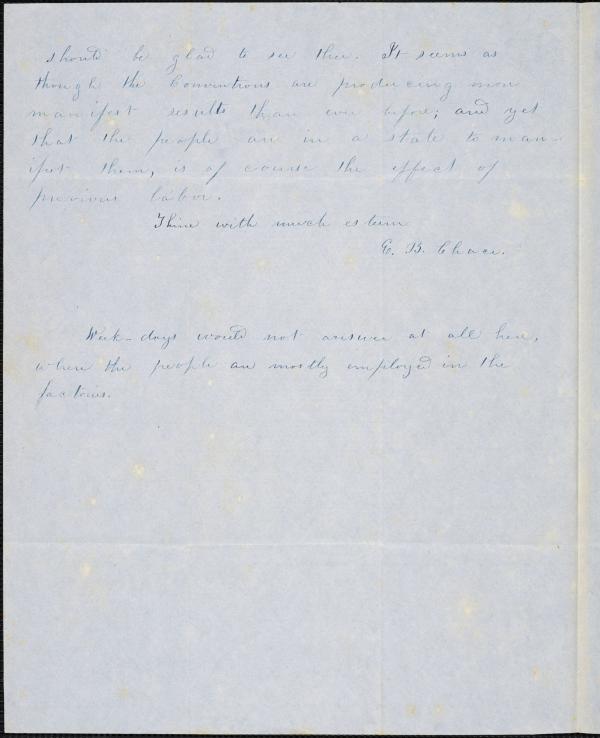 should be glad to see thee. It seems as
though the Conventions are producing more
manifest results than ever before; and yet
that the people are in a state to man-
ifest them, is of course the effect of
previous labor.
Thine with much esteem
E. B. Chace.
Week-days would not answer at all here,
where the people are mostly employed in the
factories.